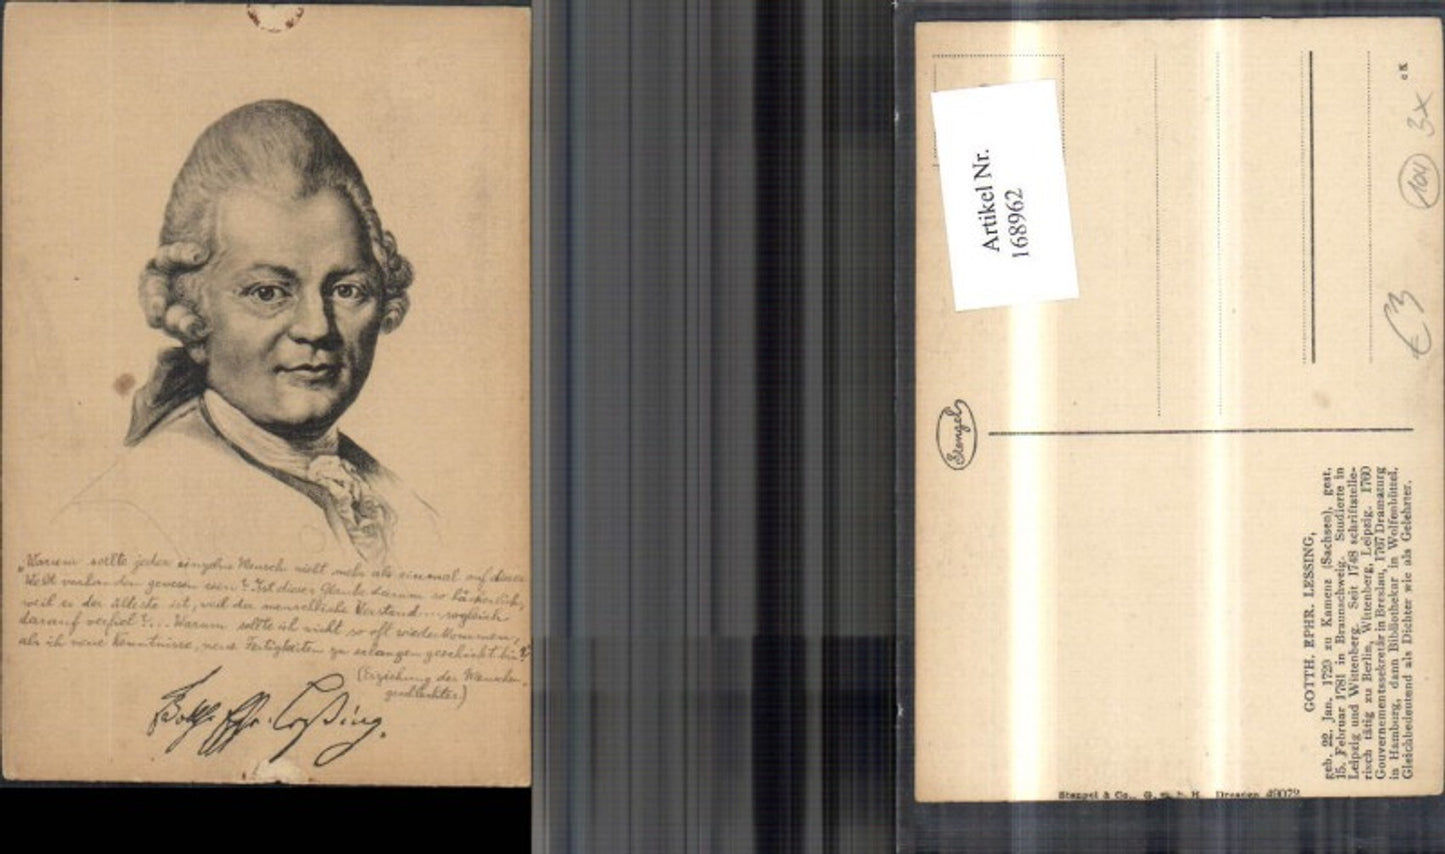 „Warum sollte jeder einzelne Mensch nicht mehr als einmal auf dieser
Welt vorhanden gewesen sein? Ist diese Glaube darum so lächerlich,
weil er der älteste ist, weil der menschliche Verstand... sogleich
darauf verfiel?... Warum sollte ich nicht so oft wiederkommen,
als ich neue Kenntnisse, neue Fertigkeiten zu erlangen geschickt bin?"
(Erziehung des Menschen-
geschlechtes)
Gotth. Ephr. Lessing.
Artikel Nr.
168962
Stengel
€3
104
3x
e K
GOTTH. EPHR. LESSING,
geb. 22. Jan. 1729 zu Kamenz (Sachsen), gest.
15. Februar 1781 in Braunschweig. Studierte in
Leipzig und Wittenberg. Seit 1748 schriftstelle-
risch tätig zu Berlin, Wittenberg, Leipzig. 1760
Gouvernementssekretär in Breslau, 1767 Dramaturg
in Hamburg, dann Bibliothekar in Wolfenbüttel.
Gleichbedeutend als Dichter wie als Gelehrter.
Stengel & Co., G. m. b. H. Dresden 49072